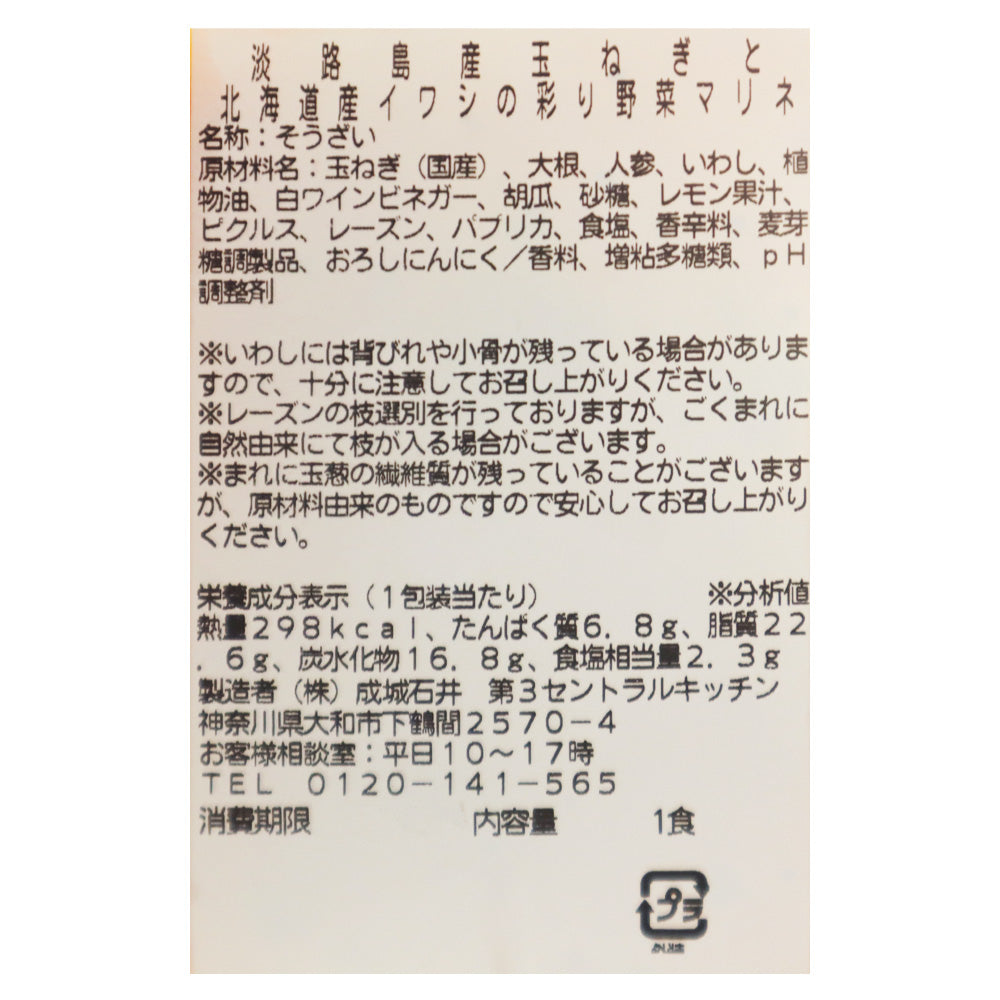 淡路島産玉ねぎと
北海道産イワシの彩り野菜マリネ
名称：そうざい
原材料名：玉ねぎ（国産）、大根、人参、いわし、植
物油、白ワインビネガー、胡瓜、砂糖、レモン果汁、
ピクルス、レーズン、パプリカ、食塩、香辛料、麦芽
糖調製品、おろしにんにく／香料、増粘多糖類、ｐＨ
調整剤
※いわしには背びれや小骨が残っている場合がありま
すので、十分に注意してお召し上がりください。
※レーズンの枝選別を行っておりますが、ごくまれに
自然由来にて枝が入る場合がございます。
※まれに玉葱の繊維質が残っていることがございます
が、原材料由来のものですので安心してお召し上がり
ください。
栄養成分表示（１包装当たり） ※分析値
熱量２９８ｋｃａｌ、たんぱく質６．８ｇ、脂質２２
．６ｇ、炭水化物１６．８ｇ、食塩相当量２．３ｇ
製造者（株）成城石井　第３セントラルキッチン
神奈川県大和市下鶴間２５７０－４
お客様相談室：平日１０～１７時
ＴＥＬ　０１２０－１４１－５６５
消費期限 内容量 1食
プラ
外装